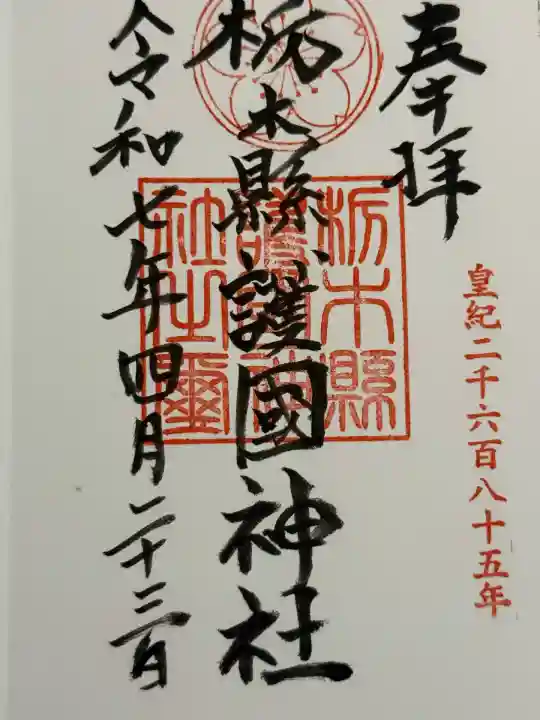 奉拝
皇紀二千六百八十五年
栃木縣護國神社
栃木縣護國神社之璽
令和七年四月二十三日